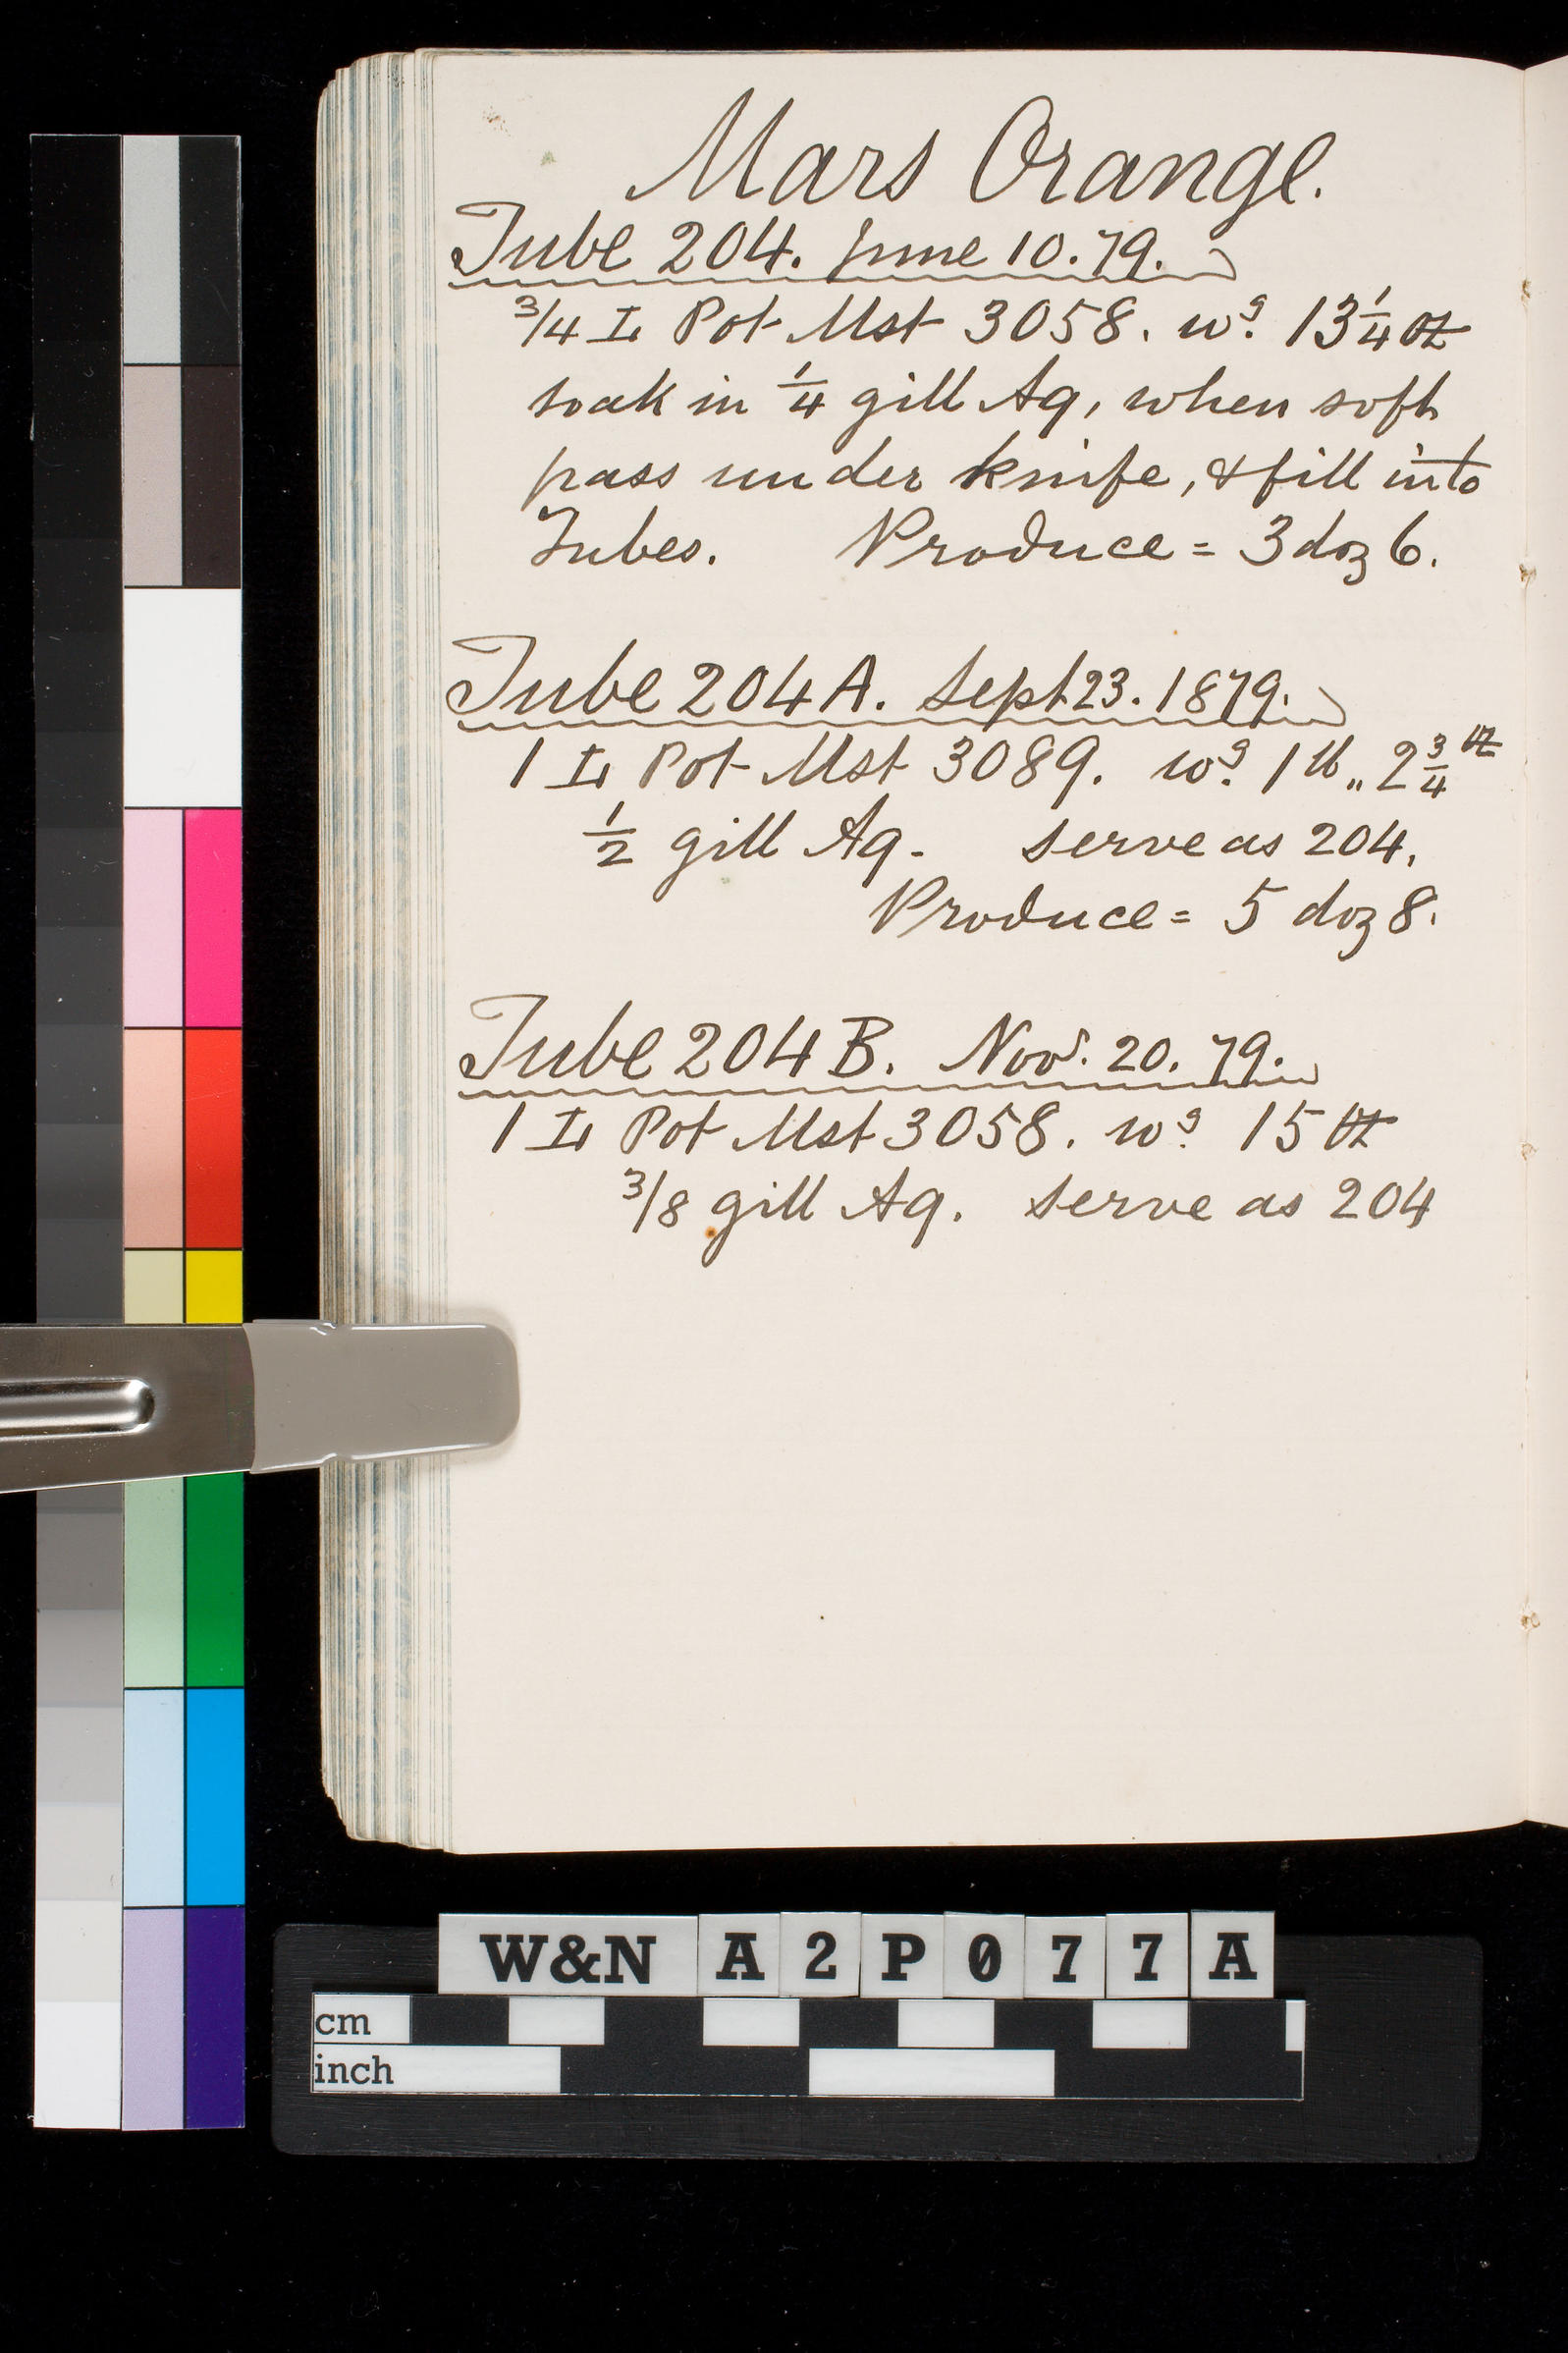 Mars Orange.
Tube 204. June 10.79.
3/4 L Pot Mst 3058. wg. 13 1/4 oz
soak in 1/4 gill Aq, when soft
pass under knife, & fill into
Tubes. Produce = 3 doz 6.
Tube 204A. Sept 23. 1879.
1 L Pot Mst 3089. wg. 1 lb,, 2 3/4 oz
1/2 gill Aq. serve as 204.
Produce = 5 doz 8.
Tube 204 B. Novr. 20. 79.
1 L Pot Mst 3058. wg. 15 oz
3/8 gill Aq. serve as 204
W&N A2P077A
cm
inch